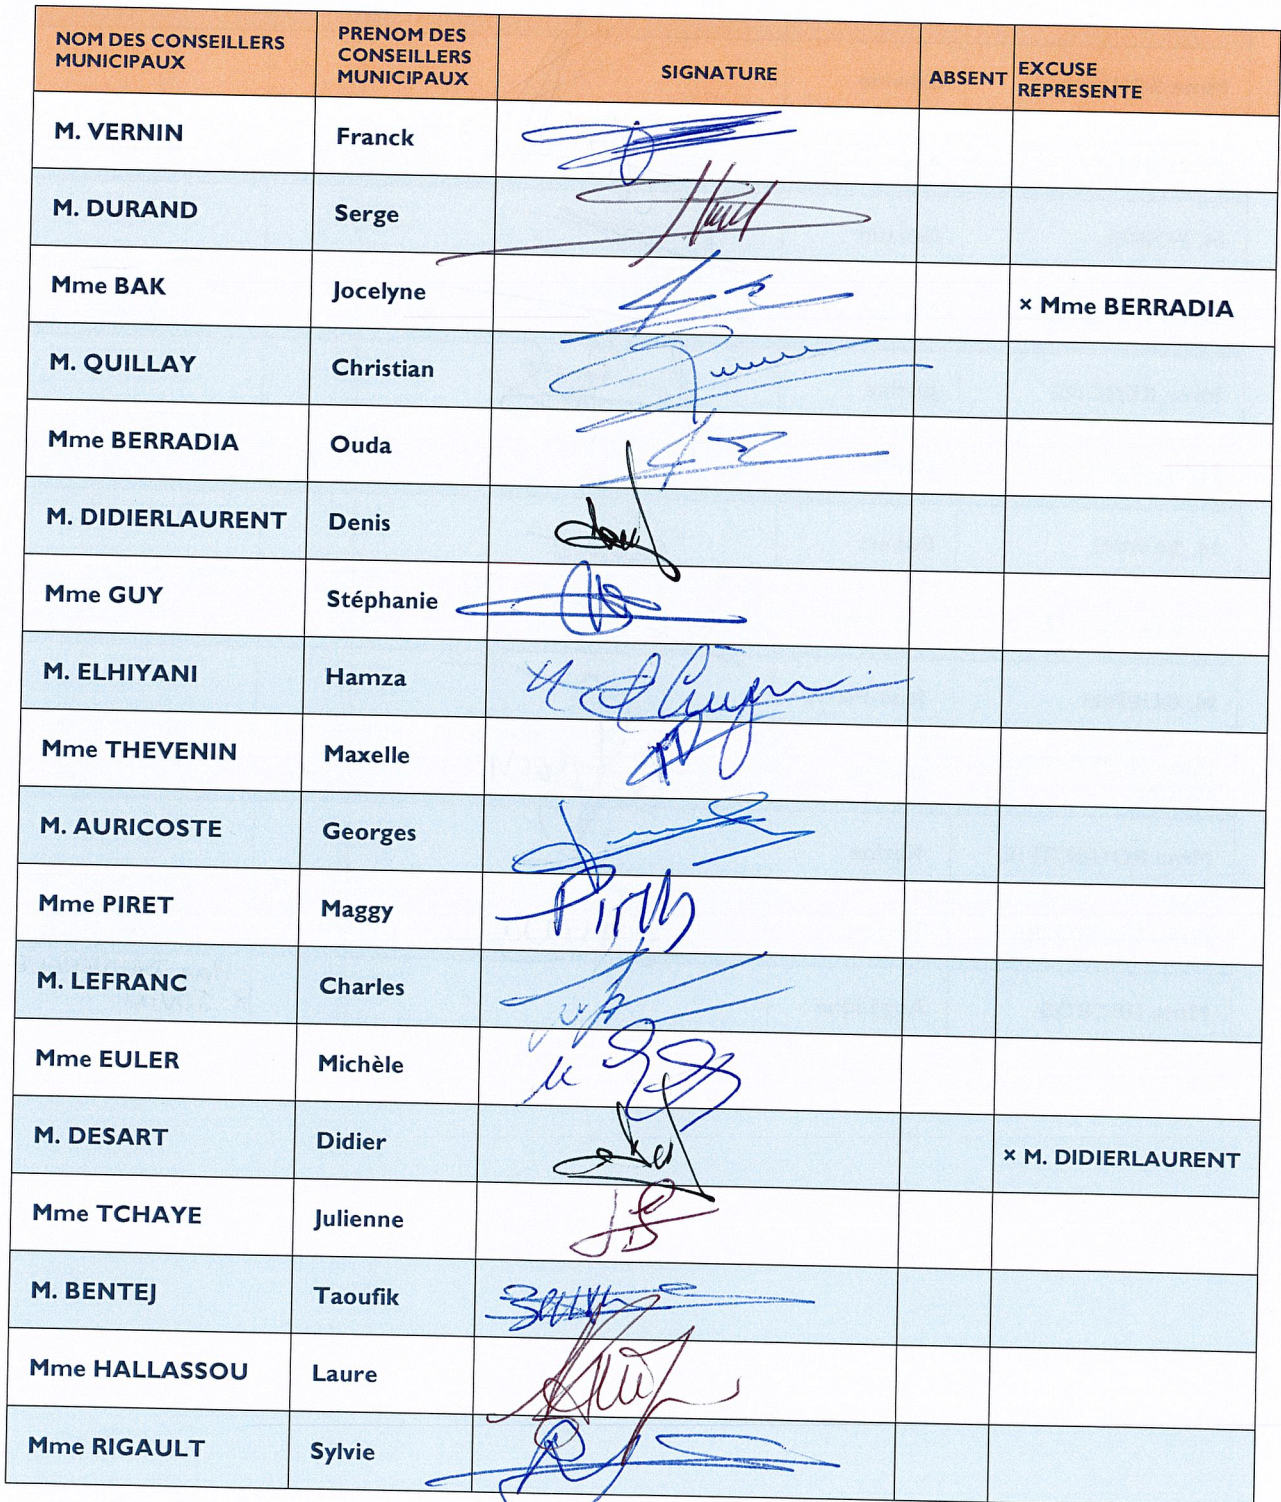 NOM DES CONSEILLERS
MUNICIPAUX
PRENOM DES
CONSEILLERS
MUNICIPAUX
SIGNATURE
ABSENT
EXCUSE
REPRESENTE
M. VERNIN Franck
M. DURAND Serge
Mme BAK Jocelyne × Mme BERRADIA
M. QUILLAY Christian
Mme BERRADIA Ouda
M. DIDIERLAURENT Denis
Mme GUY Stéphanie
M. ELHIYANI Hamza
Mme THEVENIN Maxelle
M. AURICOSTE Georges
Mme PIRET Maggy
M. LEFRANC Charles
Mme EULER Michèle
M. DESART Didier × M. DIDIERLAURENT
Mme TCHAYE Julienne
M. BENTEJ Taoufik
Mme HALLASSOU Laure
Mme RIGAULT Sylvie